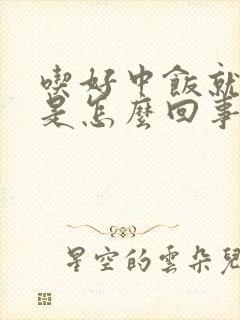 喫好中飯就
是怎麼回事
星空的雲朵兒